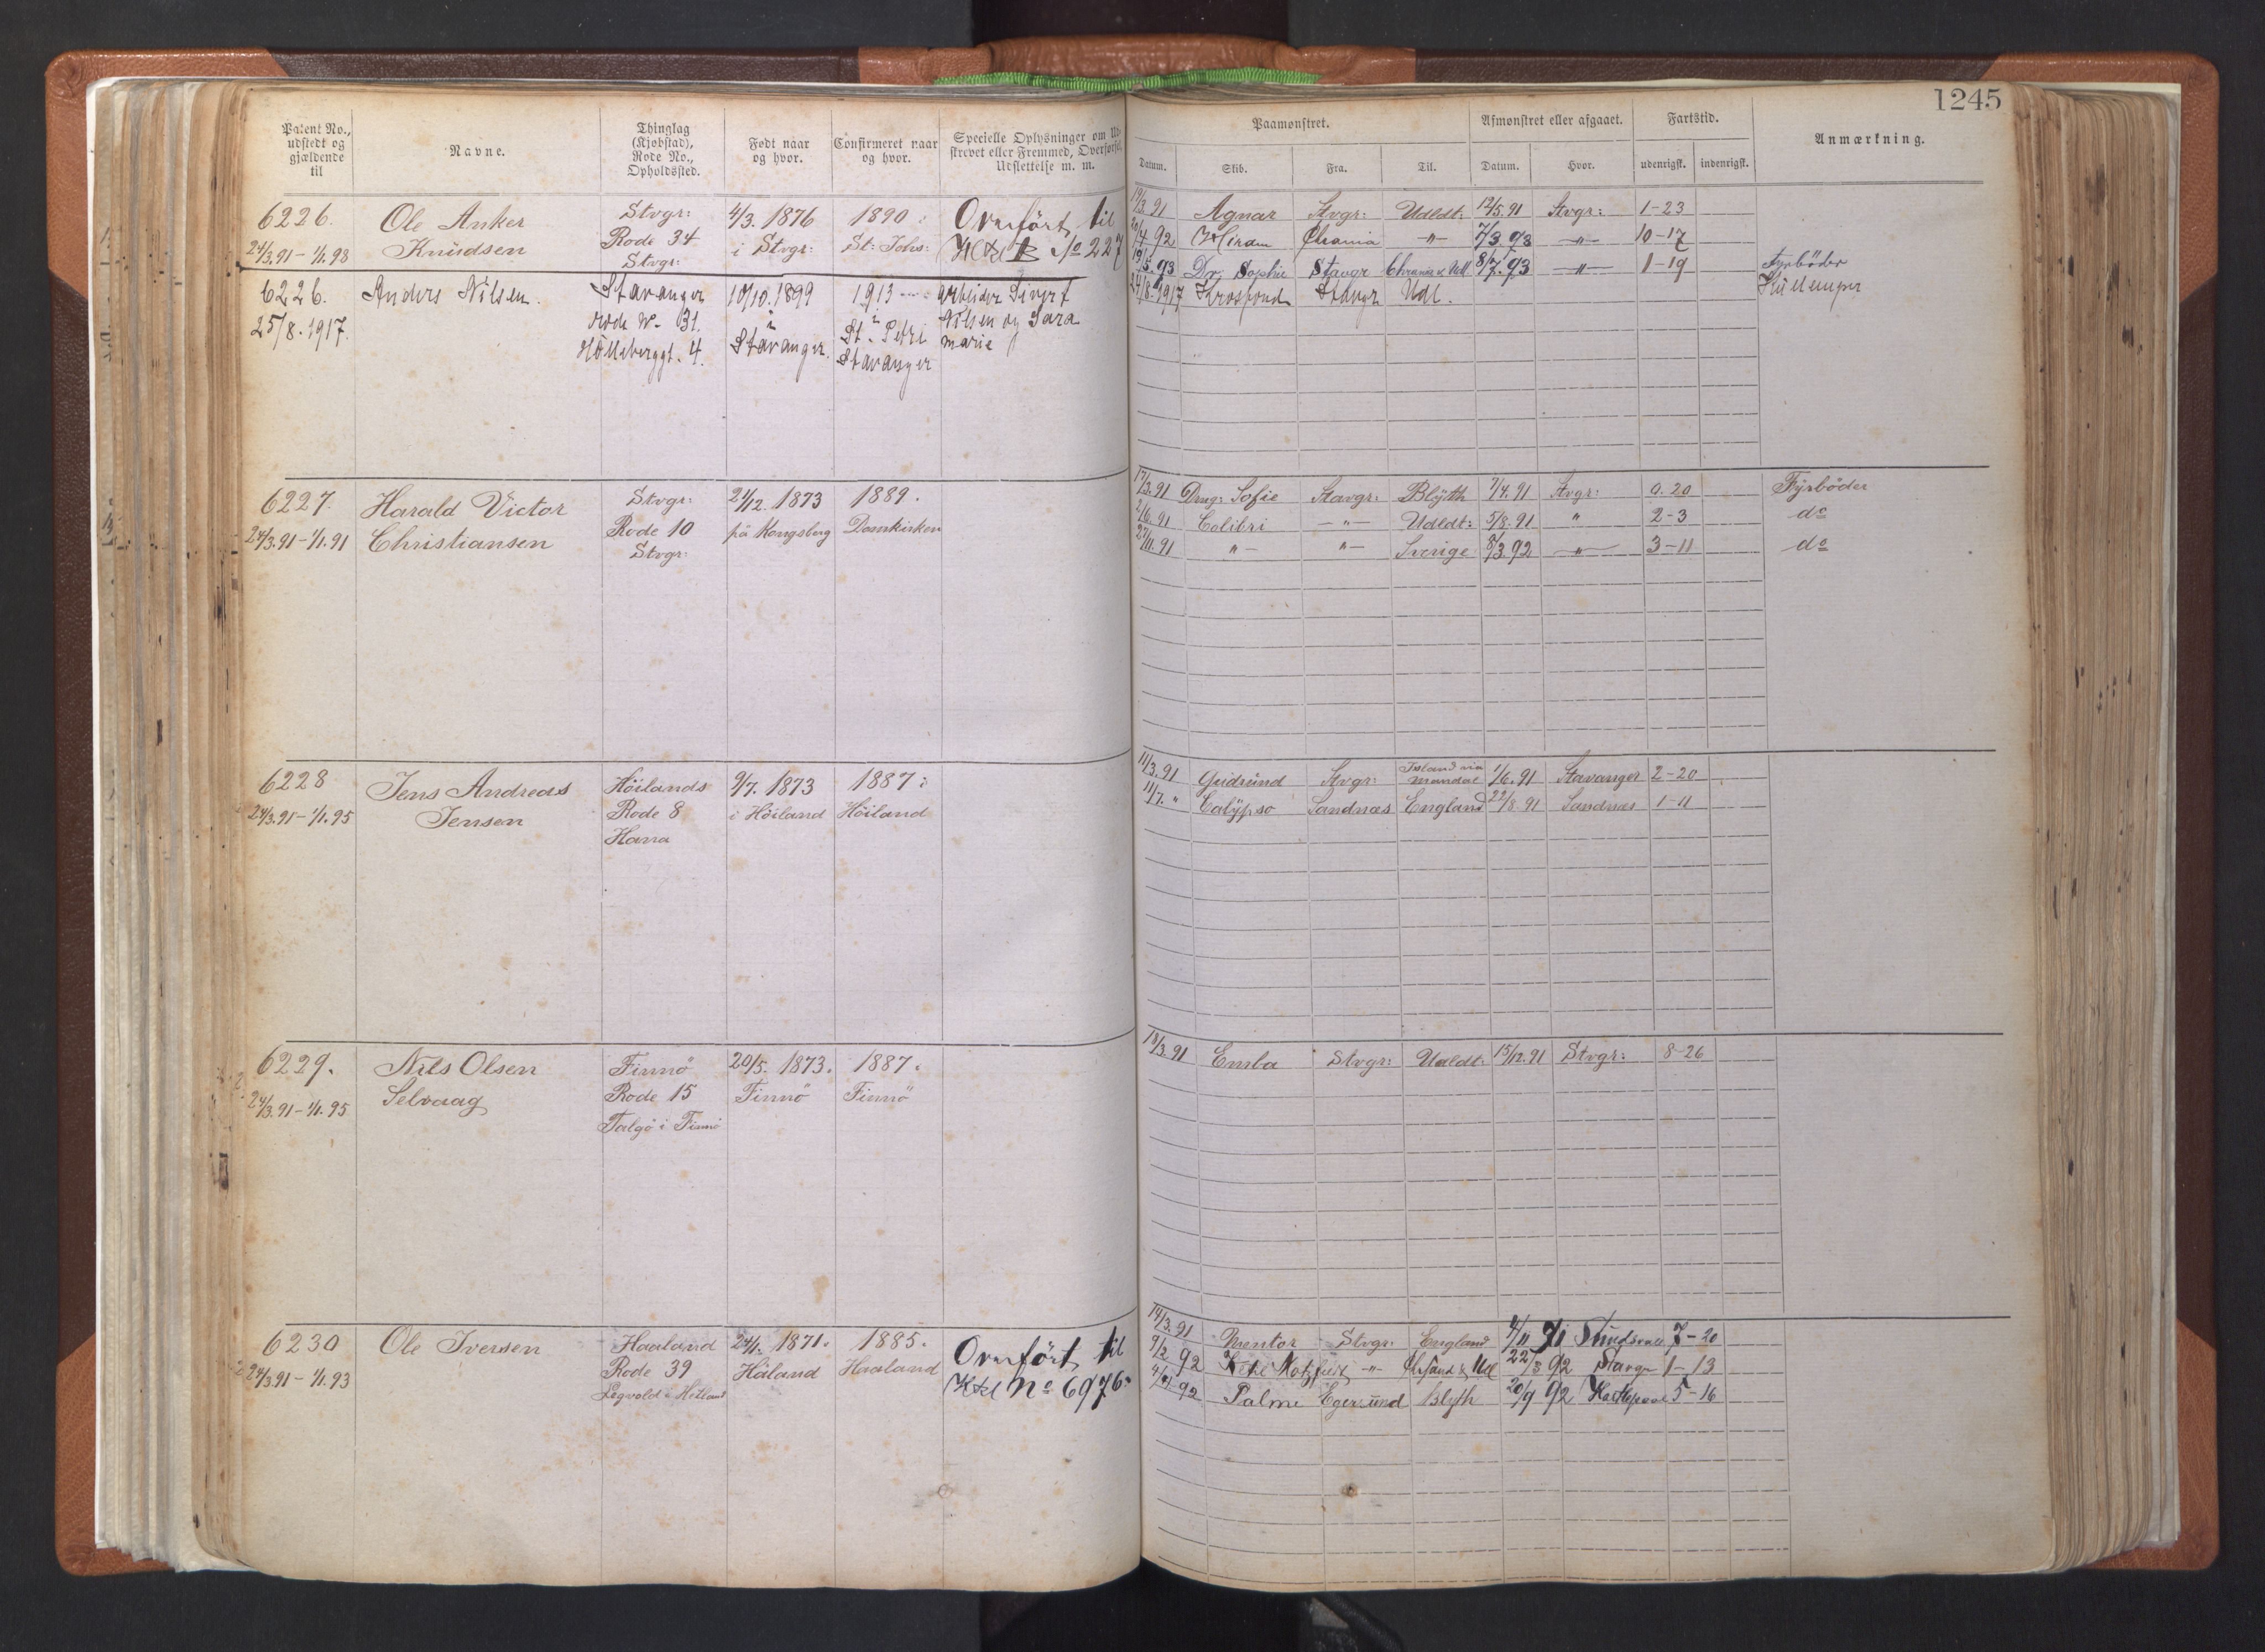 1245
Patent No., udstedt og gjældende til
Navne.
Thinglag (Kjøbstad), Rode No., Opholdssted.
Født naar og hvor.
Confirmeret naar og hvor.
Specielle Oplysninger om Ud-
skrevet eller Fremmed, Overførsel,
Udslettelse m. m.
Paamønstret.
Afmønstret eller afgaaet.
Fartstid.
Anmærkning.
Datum. Skib. Fra. Til. Datum. Hvor. udenrigsk. indenrigsk.
6226. Ole Anker Stvgr: 4/3. 1876 1890. Overført til
24/3.91 - 1/1.98 Knudsen Rode 34 i Stvgr: St: Johs: No 227
Stvgr:
19/3.91 Agnar Stvgr: Udldt: 12/5.91 Stvgr: 1-23
20/4 92 Hiram Chrania -"- 7/3.93 -"- 10-17
19/5.93 Dr: Sophie Stavgr Chrania & Udl 8/7.93 -"- 1-19 Fyrbøder
6226. Anders Nilsen. Stavanger 10/10.1899 1913 Arbeider Sivert
25/8.1917. rode No 31. i Stavanger. i St. Petri Nilsen og Sara
4. Stavanger marie
24/8.1917 Krosfond Stavgr Udl. Kullemper
6227. Harald Victor Stvgr: 24/12. 1873 1889.
24/3.91 - 1/1.91 Christiansen Rode 10 på Kongsberg Domkirken
Stvgr:
17/3.91 Drug: Sofie Stavgr: Blÿth 7/4.91 Stvgr: 0.20 Fyrbøder
2/6.91 Colibri -"- Udldt: 5/8.91 " 2-3 do
27/11.91 "- "- Sverige 8/3.92 -"- 3-11 do
6228 Jens Andreas Höilands 9/7. 1873 1887:
24/3.91 - 1/1.95 Jensen Rode 8 i Höiland Höiland
Hana
11/3.91 Gudrund Stvgr: Island via Mandal 1/6.91 Stavanger 2-20
11/7. " Calÿpso Sandnæs England 22/8.91 Sandnæs 1-11
6229. Nils Olsen Finnö 20/5. 1873. 1887.
24/3.91 - 1/1.95 Selvaag Rode 15 Finnö Finnö
Talgö i Finnö
18/3.91 Embla Stvgr: Udldt: 15/12.91 Stvgr: 8-26
6230 Ole Iversen Haaland 24/1. 1871. 1885. Overført til
24/3.91 - 1/1.93 Rode 39 Håland Haaland No 6976.
i Hetland
14/3.91 Mentor Stvgr: England 4/11 91 Sundsvall 7-20
9/2 92 -"- Chrsand & Udl 22/3 92 Stavgr 1-13
4/4.92 Palme Egersund Blyth 20/9 92 Hartlepool 5-16